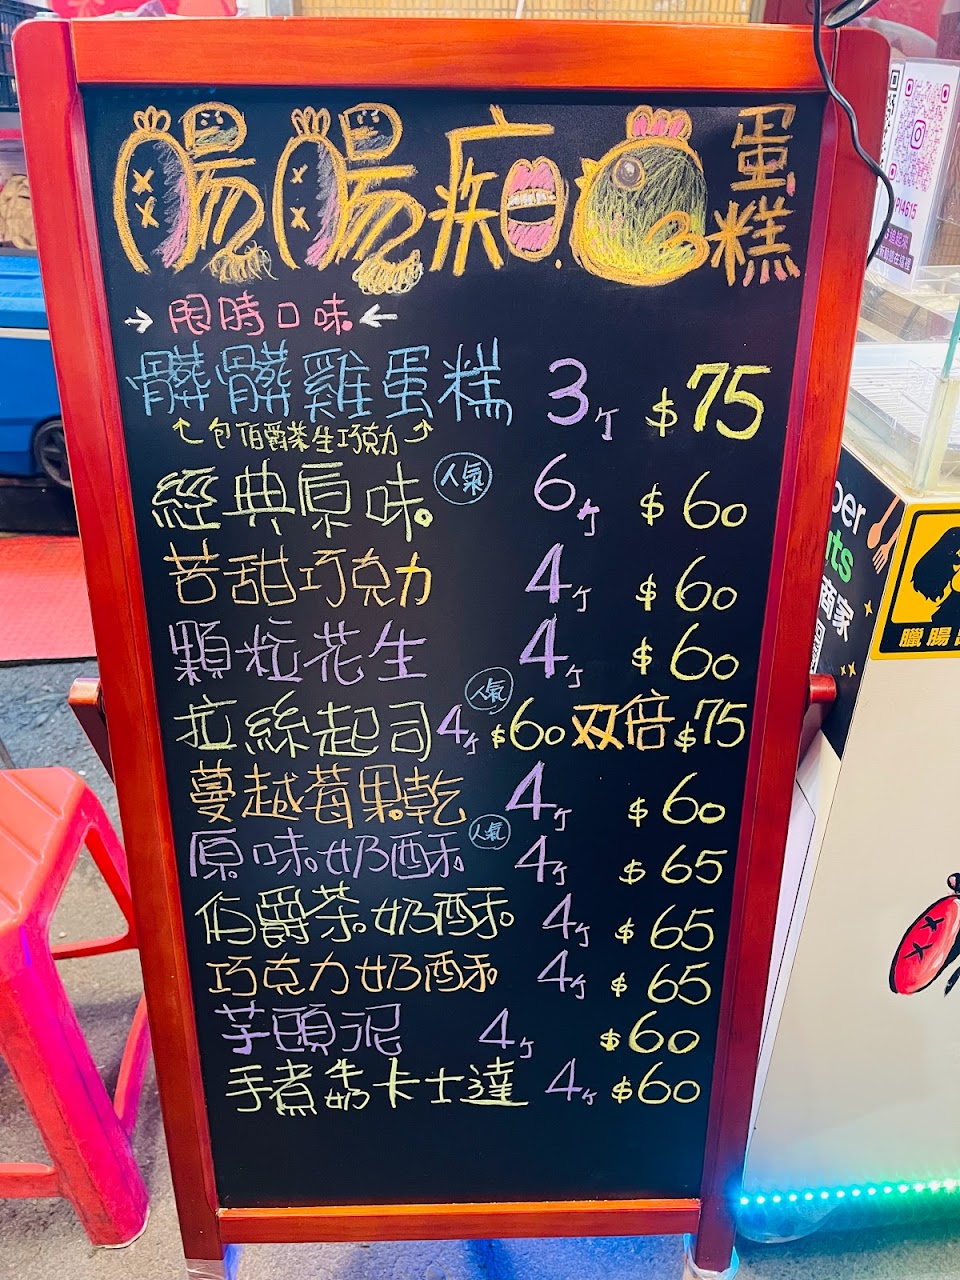 腸腸痴 蛋糕
→ 限時口味 ←
髒髒雞蛋糕 3个 $75
包伯爵茶生巧克力
經典原味 人氣 6个 $60
苦甜巧克力 4个 $60
顆粒花生 4个 $60
拉絲起司 人氣 4个 $60 双倍 $75
蔓越莓果乾 4个 $60
原味奶酥 人氣 4个 $65
伯爵茶奶酥 4个 $65
巧克力奶酥 4个 $65
芋頭泥 4个 $60
手煮牛奶卡士達 4个 $60
PI4615
商家
臘腸